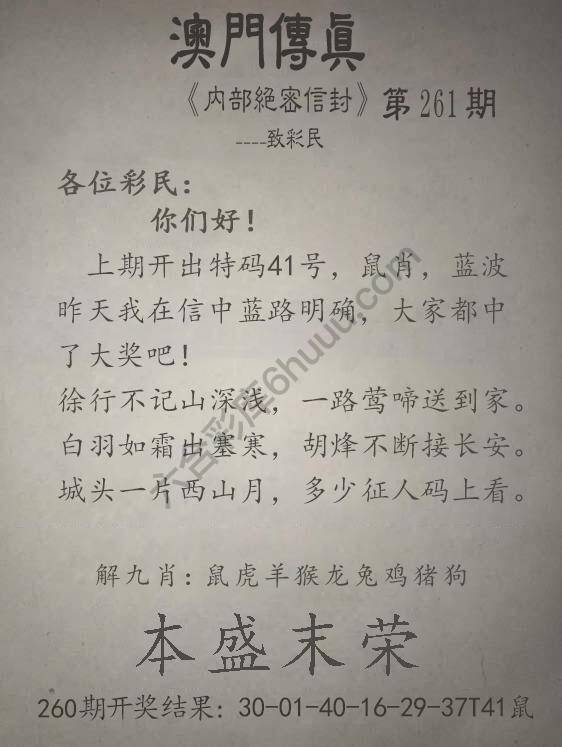 澳門傳真
《内部絕密信封》第261期
----致彩民
各位彩民：
你们好！
上期开出特码41号，鼠肖，蓝波
昨天我在信中蓝路明确，大家都中
了大奖吧！
徐行不记山深浅，一路莺啼送到家。
白羽如霜出塞寒，胡烽不断接长安。
城头一片西山月，多少征人码上看。
解九肖：鼠虎羊猴龙兔鸡猪狗
本盛末荣
260期开奖结果：30-01-40-16-29-37T41鼠
六合彩库6huuu.com